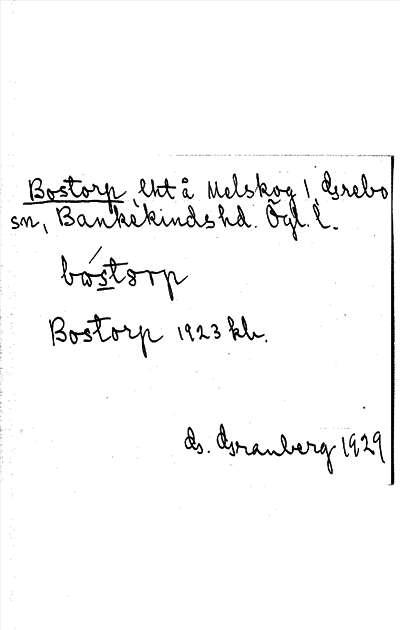 Bostorp, lht å Melskog 1, Grebo
sn, Bankekinds hd. Ögl. l.
bωstorp
Bostorp 1923 kb.
G. Granberg 1929